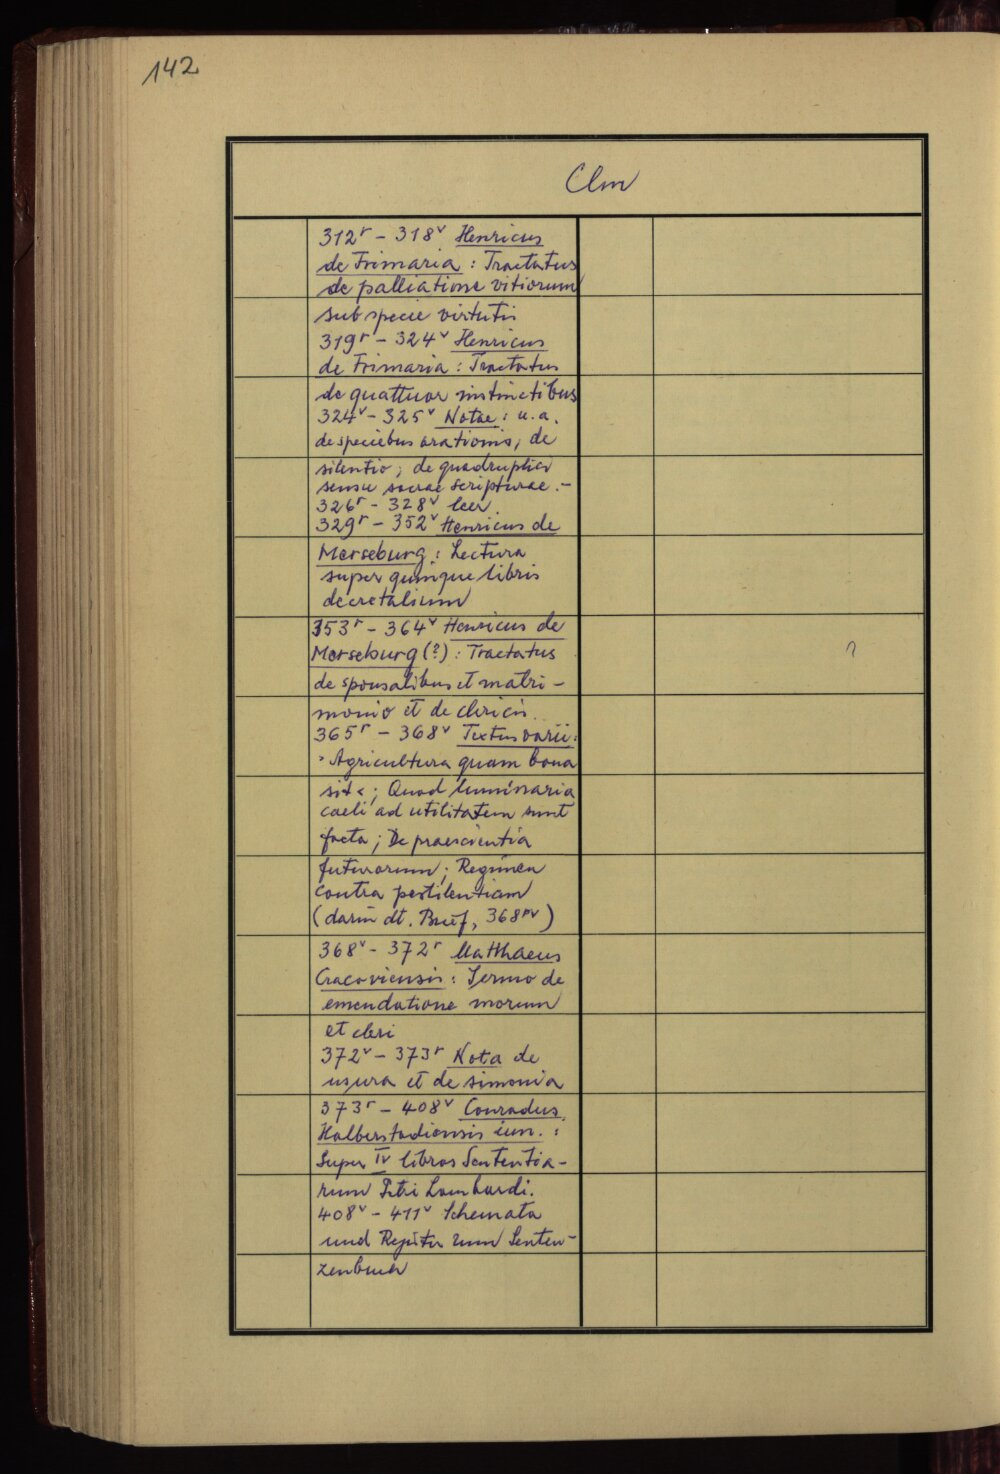 142
Clm
312r – 318v Henricus
de Frimaria : Tractatus
de palliatione vitiorum
sub specie virtutis
319r – 324v Henricus
de Frimaria : Tractatus
de quattuor instinctibus
324v – 325v Notae : u. a.
de speciebus orationis, de
silentio ; de quadruplici
sensu sacrae scripturae. –
326r – 328v leer
329r – 352v Henricus de
Merseburg : Lectura
super quinque libris
decretalium
353r – 364v Henricus de
Merseburg (?) : Tractatus
?
de sponsalibus et matri-
monio et de clericis
365r – 368v Textus varii :
› Agricultura quam bona
sit ‹ ; Quod luminaria
caeli ad utilitatem sunt
facta ; De praescientia
futurorum ; Regimen
contra pestilentiam
(darin dt. Brief, 368rv)
368v – 372r Matthaeus
Cracoviensis : Sermo de
emendatione morum
et cleri
372v – 373r Nota de
usura et de simonia
373r – 408v Conradus
Halberstadiensis iun. :
Super IV libros Sententia-
rum Petri Lombardi.
408v – 411v Schemata
und Register zum Senten-
zenbuch